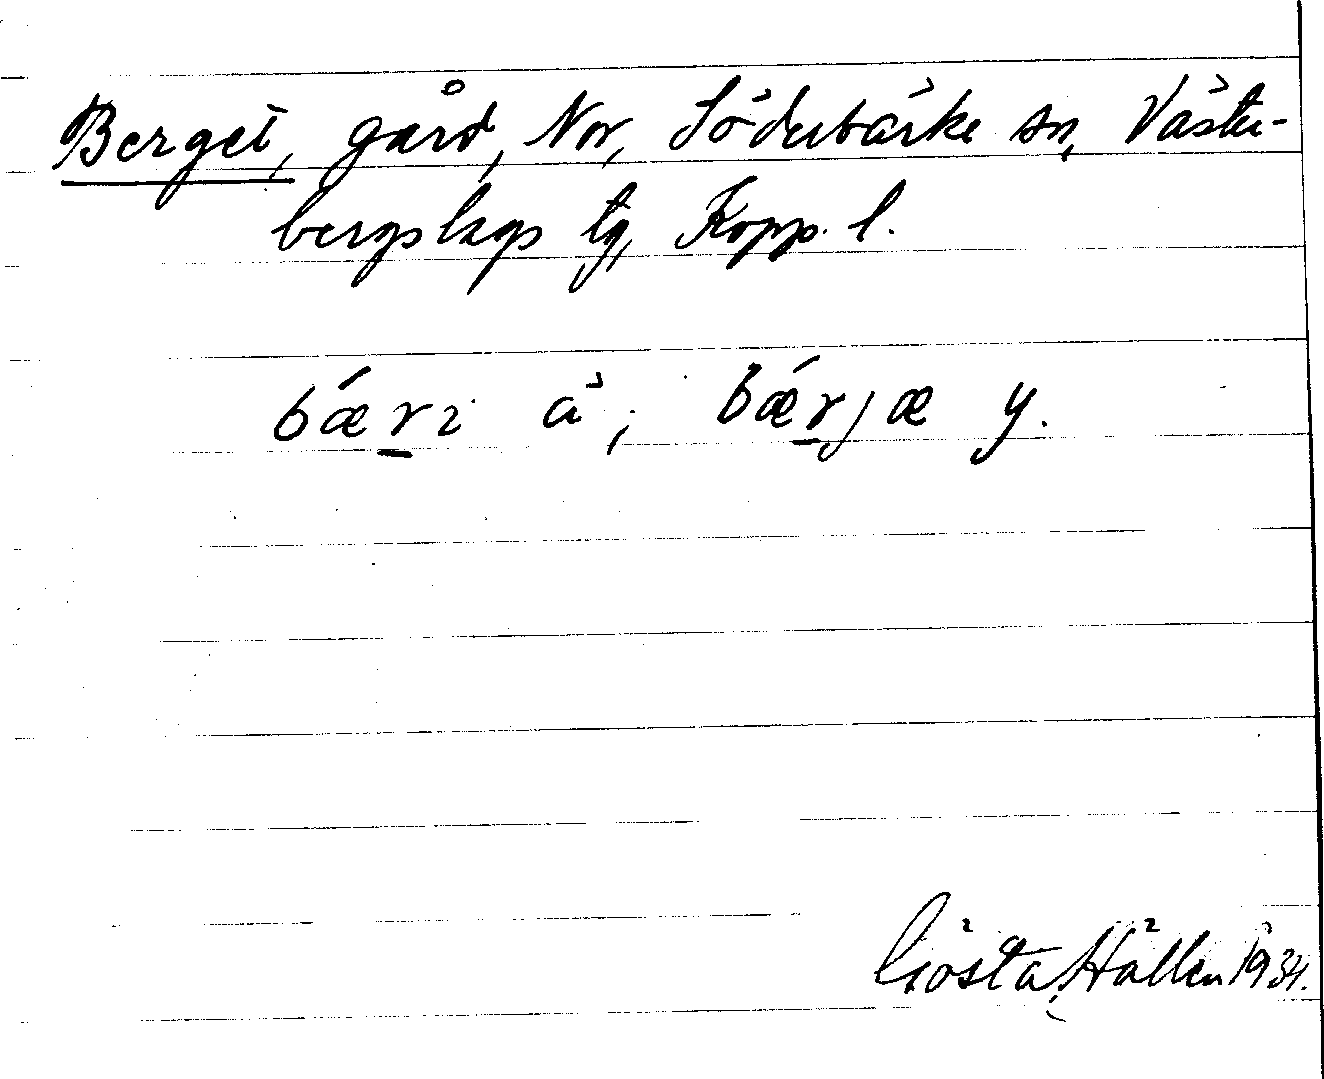 Berget, gård, Nor, Söderbärke sn, Väster-
bergslags tg, Kopp. l.
bǽri ä; bǽrjæ y.
Gösta Hällen 1934.